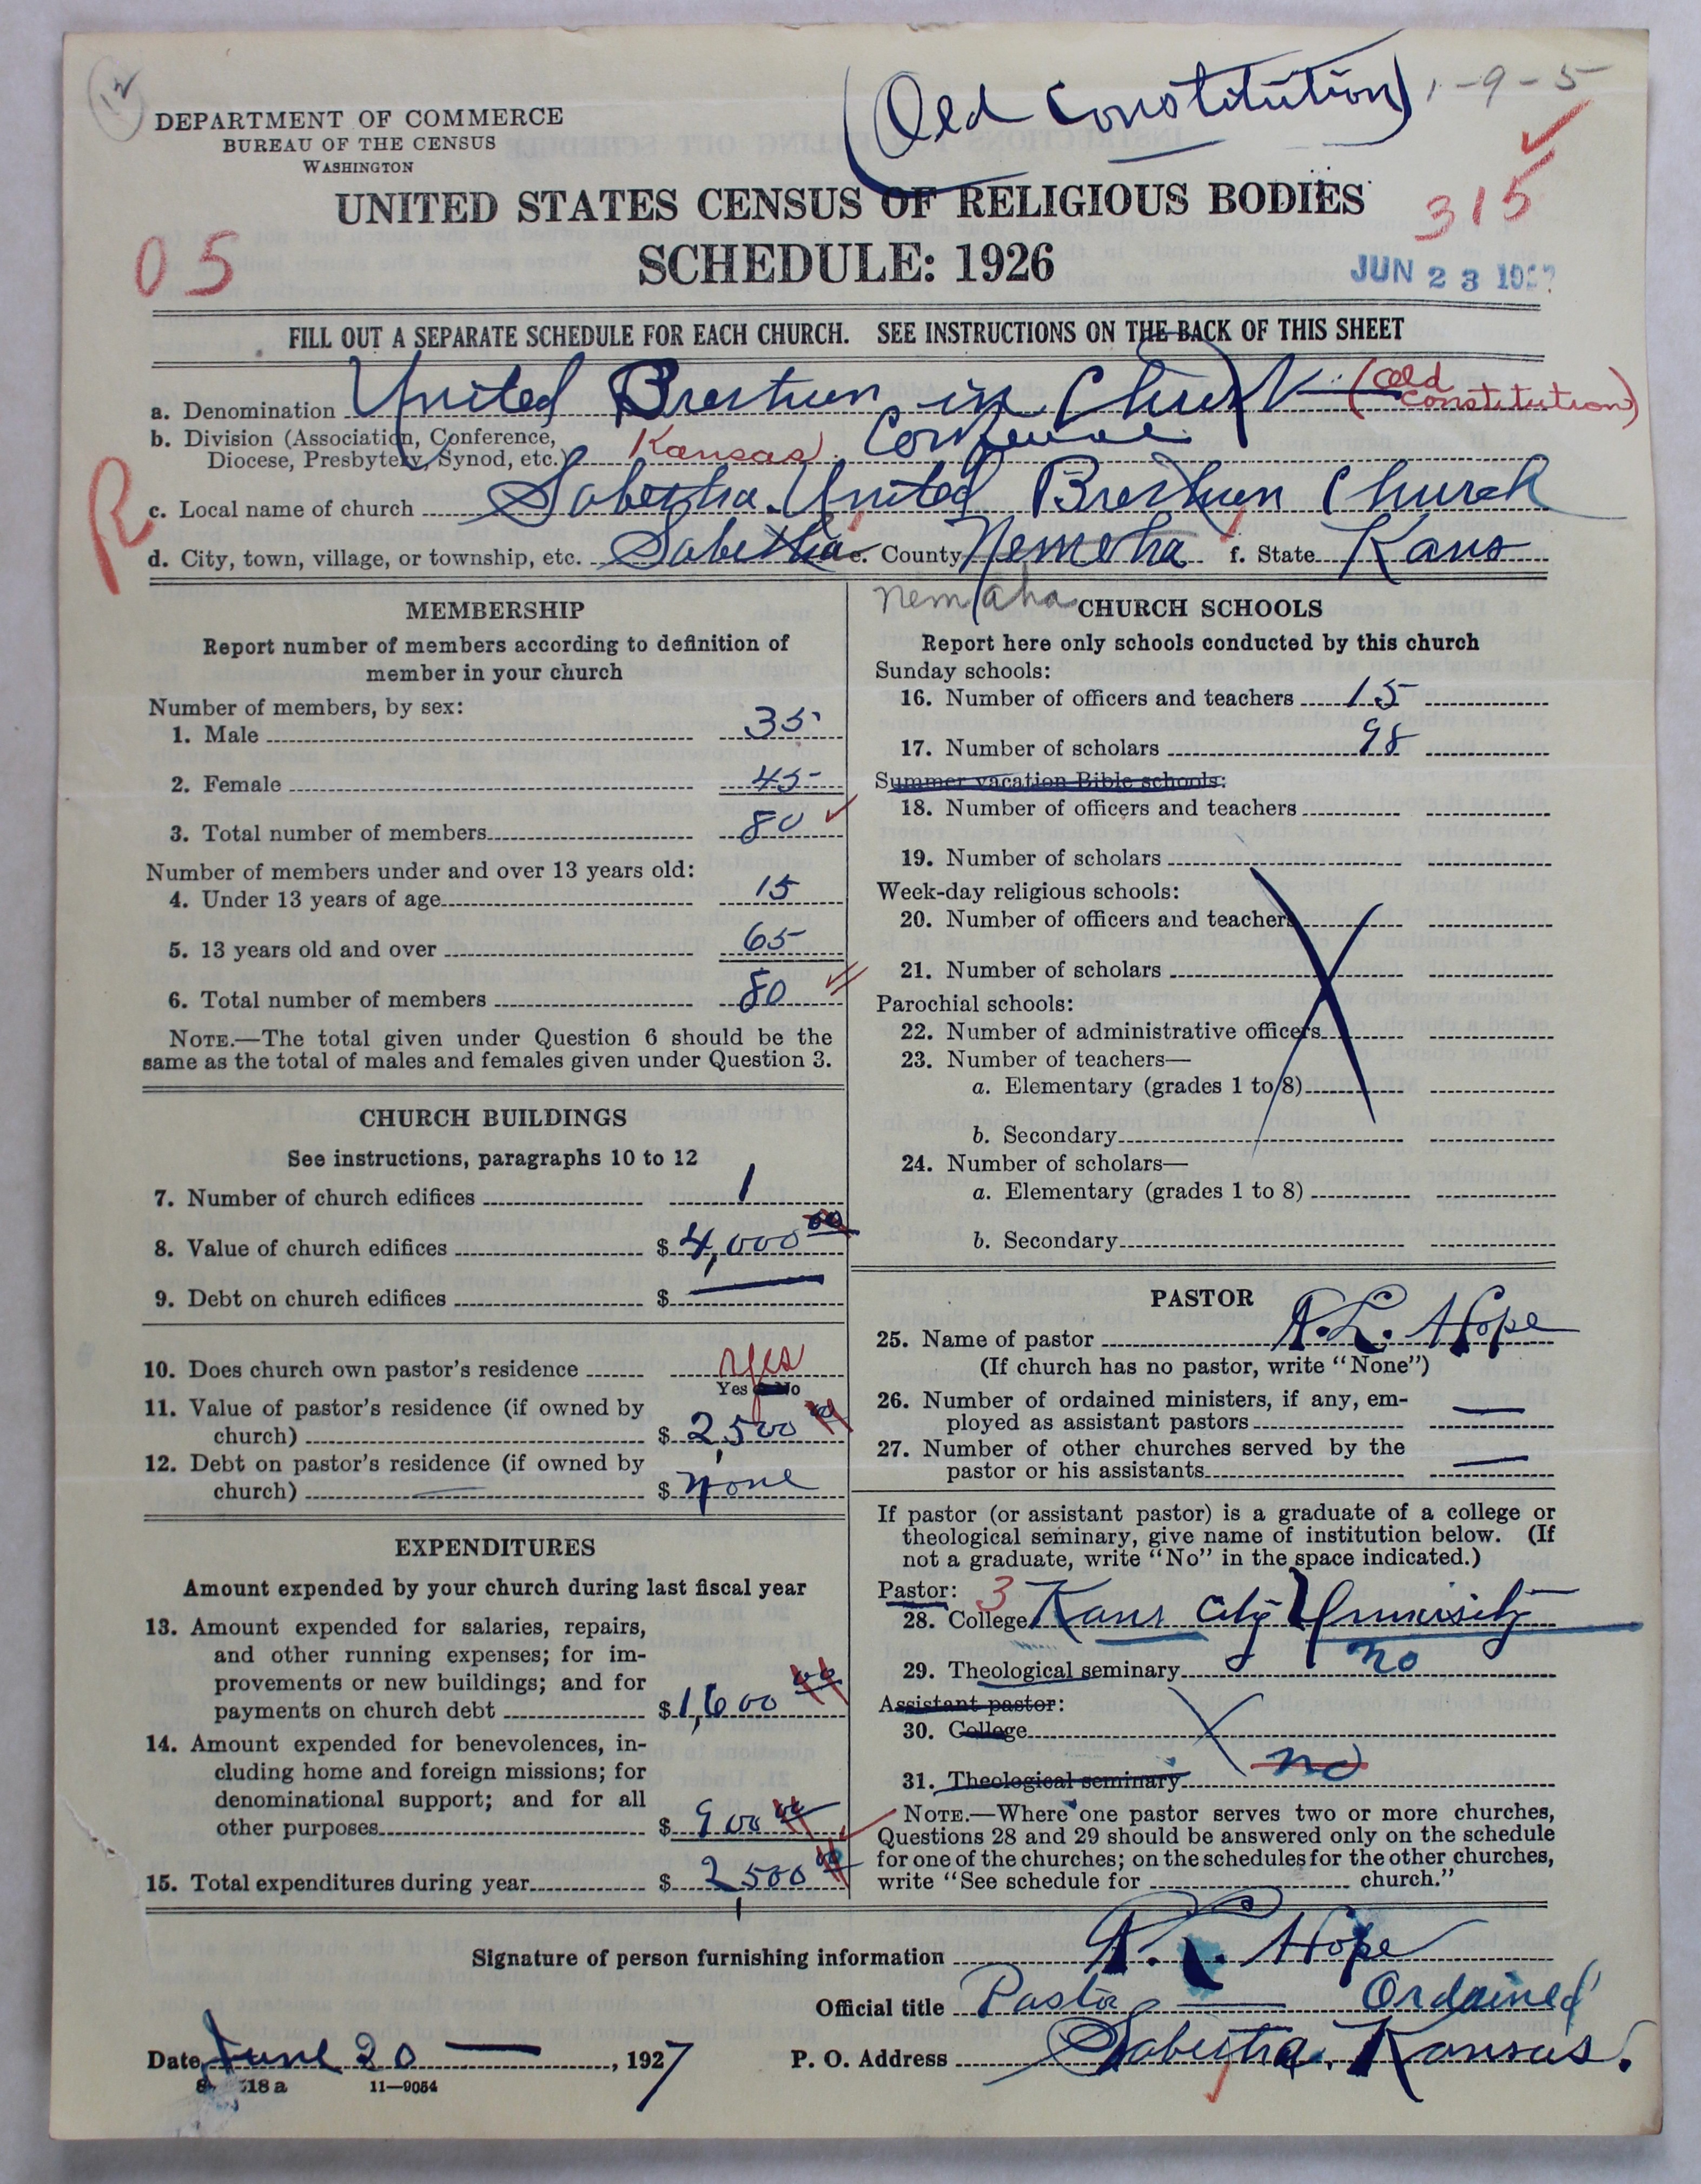 12
(Old Constitution) 1-9-5
DEPARTMENT OF COMMERCE
BUREAU OF THE CENSUS
WASHINGTON
UNITED STATES CENSUS OF RELIGIOUS BODIES
315
05
SCHEDULE: 1926
JUN 23 192
FILL OUT A SEPARATE SCHEDULE FOR EACH CHURCH. SEE INSTRUCTIONS ON THE BACK OF THIS SHEET
a. Denomination United Brethren in Christ (Old Constitution)
b. Division (Association, Conference,
Diocese, Presbytery, Synod, etc.) Kansas Conference
R
c. Local name of church Sabetha United Brethren Church
d. City, town, village, or township, etc. Sabetha e. County Nemeha f. State Kans
Nemaha
MEMBERSHIP
Report number of members according to definition of
member in your church
Number of members, by sex:
1. Male 35
2. Female 45
3. Total number of members 80
Number of members under and over 13 years old:
4. Under 13 years of age 15
5. 13 years old and over 65
6. Total number of members 80
NOTE.—The total given under Question 6 should be the
same as the total of males and females given under Question 3.
CHURCH BUILDINGS
See instructions, paragraphs 10 to 12
7. Number of church edifices 1
8. Value of church edifices $ 4,000 00
9. Debt on church edifices $ —
10. Does church own pastor's residence yes
Yes or No
11. Value of pastor's residence (if owned by
church) $ 2,500 00
12. Debt on pastor's residence (if owned by
church) $ none
EXPENDITURES
Amount expended by your church during last fiscal year
13. Amount expended for salaries, repairs,
and other running expenses; for im-
provements or new buildings; and for
payments on church debt $ 1,600 00
14. Amount expended for benevolences, in-
cluding home and foreign missions; for
denominational support; and for all
other purposes $ 900 00
15. Total expenditures during year $ 2,500 00
CHURCH SCHOOLS
Report here only schools conducted by this church
Sunday schools:
16. Number of officers and teachers 15
17. Number of scholars 98
Summer vacation Bible schools:
18. Number of officers and teachers
19. Number of scholars
Week-day religious schools:
20. Number of officers and teachers
21. Number of scholars
Parochial schools:
22. Number of administrative officers
23. Number of teachers—
a. Elementary (grades 1 to 8)
b. Secondary
24. Number of scholars—
a. Elementary (grades 1 to 8)
b. Secondary
PASTOR
25. Name of pastor A. L. Hope
(If church has no pastor, write "None")
26. Number of ordained ministers, if any, em-
ployed as assistant pastors —
27. Number of other churches served by the
pastor or his assistants —
If pastor (or assistant pastor) is a graduate of a college or
theological seminary, give name of institution below. (If
not a graduate, write "No" in the space indicated.)
Pastor: 3
28. College Kans City University
29. Theological seminary no
Assistant pastor:
30. College
31. Theological seminary no
NOTE.—Where one pastor serves two or more churches,
Questions 28 and 29 should be answered only on the schedule
for one of the churches; on the schedules for the other churches,
write "See schedule for church."
Signature of person furnishing information A. L. Hope
Official title Pastor — Ordained
Date June 20 — , 1927 P. O. Address Sabetha, Kansas.
18 a 11—9054